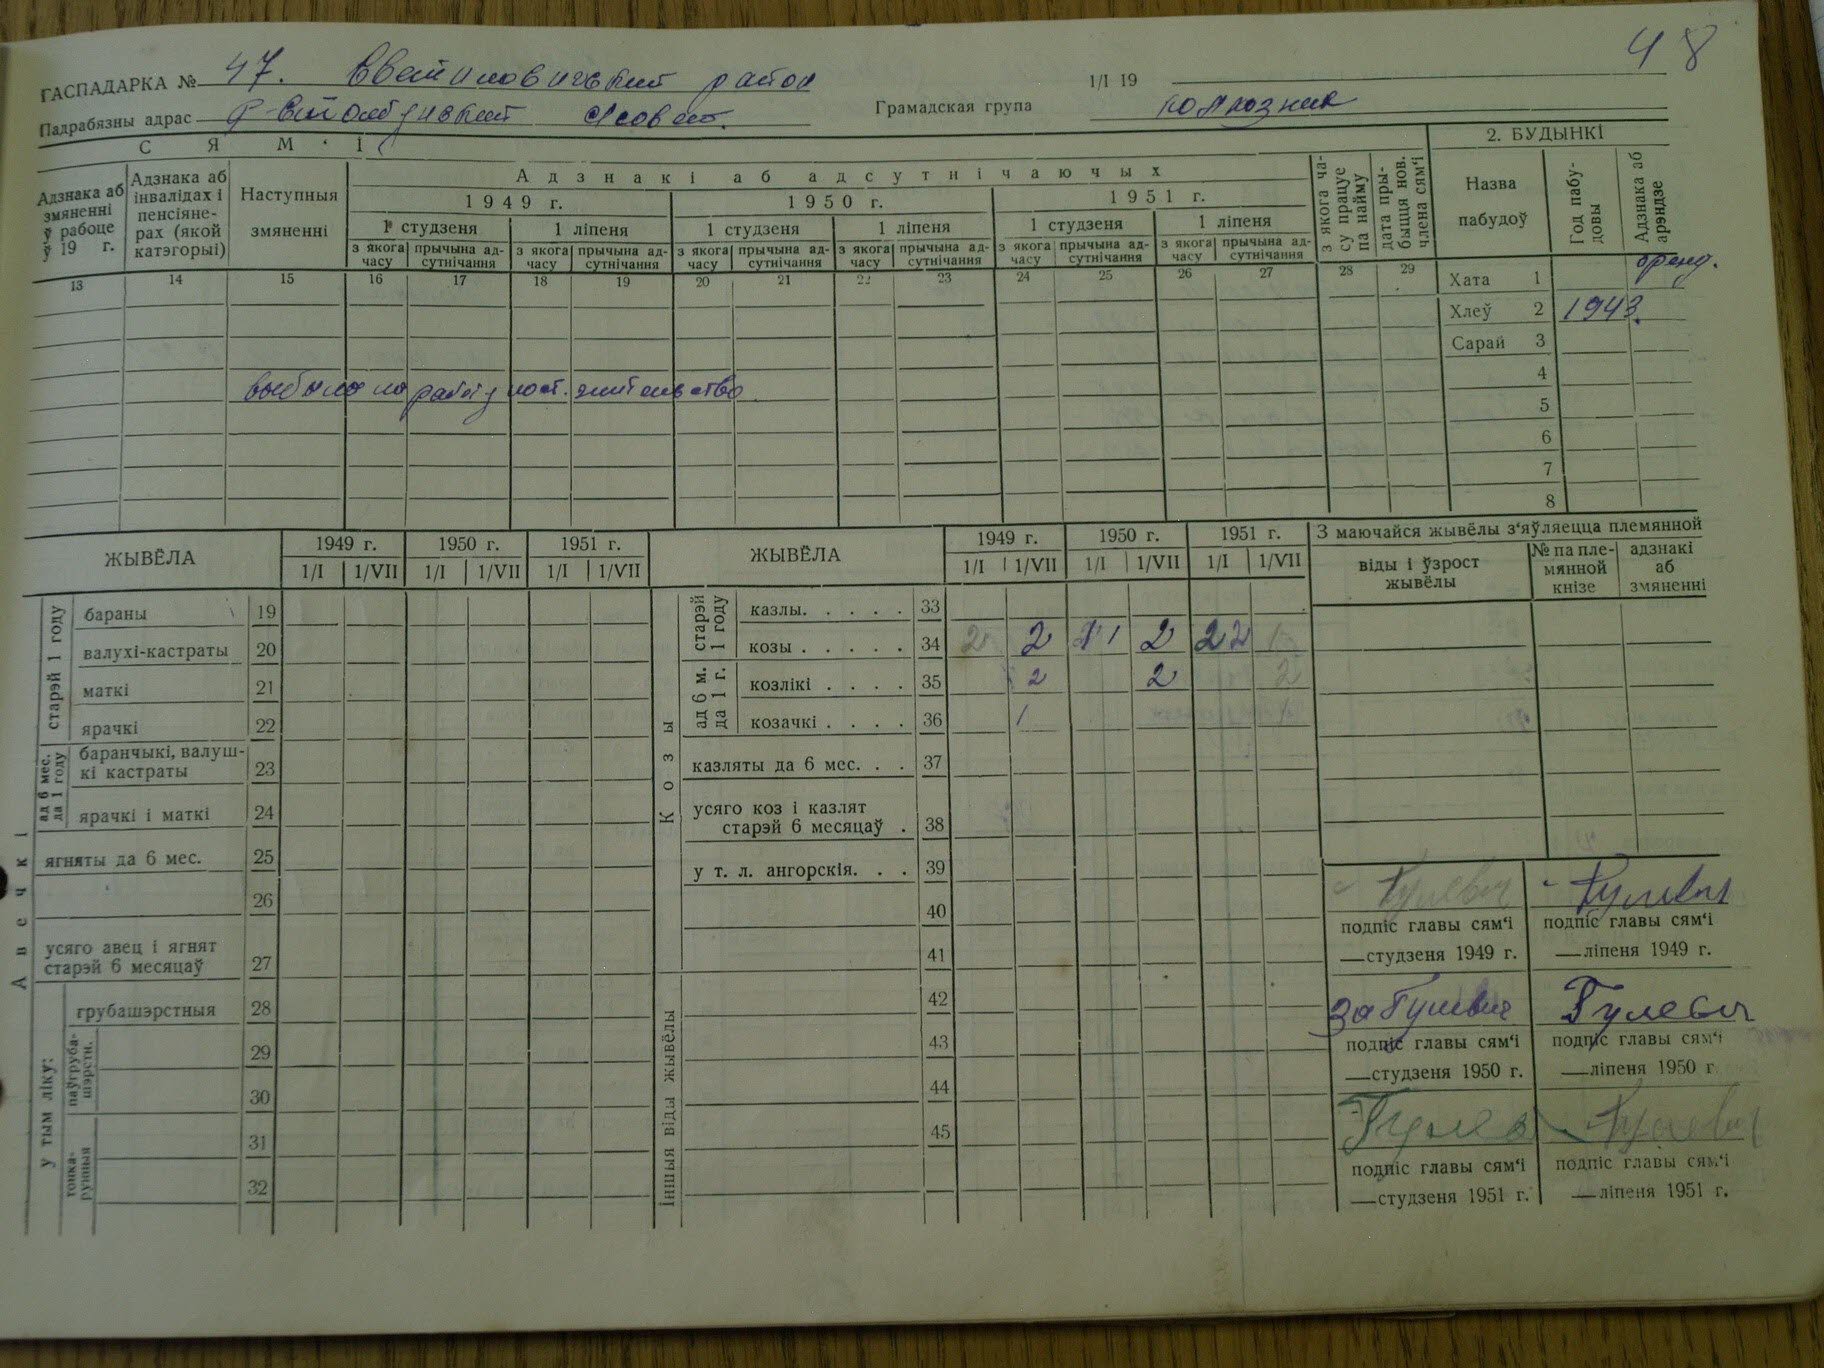 48
ГАСПАДАРКА № 47. район 1/I 19
Падрабязны адрас Грамадская група колхозник
С Я М ' І
2. БУДЫНКІ
Адзнака аб змяненні ў рабоце ў 19 г.
Адзнака аб інвалідах і пенсіянерах (якой катэгорыі)
Наступныя змяненні
Адзнакі аб адсутнічаючых
1949 г. 1950 г. 1951 г.
1 студзеня 1 ліпеня 1 студзеня 1 ліпеня 1 студзеня 1 ліпеня
з якога часу прычына адсутнічання з якога часу прычына адсутнічання з якога часу прычына адсутнічання з якога часу прычына адсутнічання з якога часу прычына адсутнічання з якога часу прычына адсутнічання
з якога часу працуе па найму
дата прыбыцця нов. члена сям'і
Назва пабудоў
Год пабудовы
Адзнака аб арэндзе
13 14 15 16 17 18 19 20 21 22 23 24 25 26 27 28 29
Хата 1 аренд.
Хлеў 2 1943.
Сарай 3
4
5
6
7
8
выбыла на работу пост. жительство
ЖЫВЁЛА 1949 г. 1950 г. 1951 г.
1/I 1/VII 1/I 1/VII 1/I 1/VII
Авечкі
старэй 1 году
бараны 19
валухі-кастраты 20
маткі 21
ярачкі 22
ад 6 мес. да 1 году
баранчыкі, валушкі кастраты 23
ярачкі і маткі 24
ягняты да 6 мес. 25
26
усяго авец і ягнят старэй 6 месяцаў 27
у тым ліку:
грубашэрстныя 28
паўгрубашэрстн. 29
30
тонкарунныя 31
32
ЖЫВЁЛА 1949 г. 1950 г. 1951 г.
1/I 1/VII 1/I 1/VII 1/I 1/VII
Козы
старэй 1 году
казлы. . . . . 33
козы . . . . . 34 2 2 1 2 2 2
ад 6 м. да 1 г.
козлікі . . . . 35 2 2 2
козачкі . . . . 36 1
казляты да 6 мес. . . 37
усяго коз і казлят старэй 6 месяцаў . 38
у т. л. ангорскія. . . 39
40
41
Іншыя віды жывёлы
42
43
44
45
З маючайся жывёлы з'яўляецца племянной
віды і ўзрост жывёлы
№ па племянной кнізе
адзнакі аб змяненні
Гулевич Гулевич
подпіс главы сям'і подпіс главы сям'і
—студзеня 1949 г. —ліпеня 1949 г.
за Гулевич Гулевич
подпіс главы сям'і подпіс главы сям'і
—студзеня 1950 г. —ліпеня 1950 г
Гулев Гулевич
подпіс главы сям'і подпіс главы сям'і
—студзеня 1951 г. —ліпеня 1951 г.